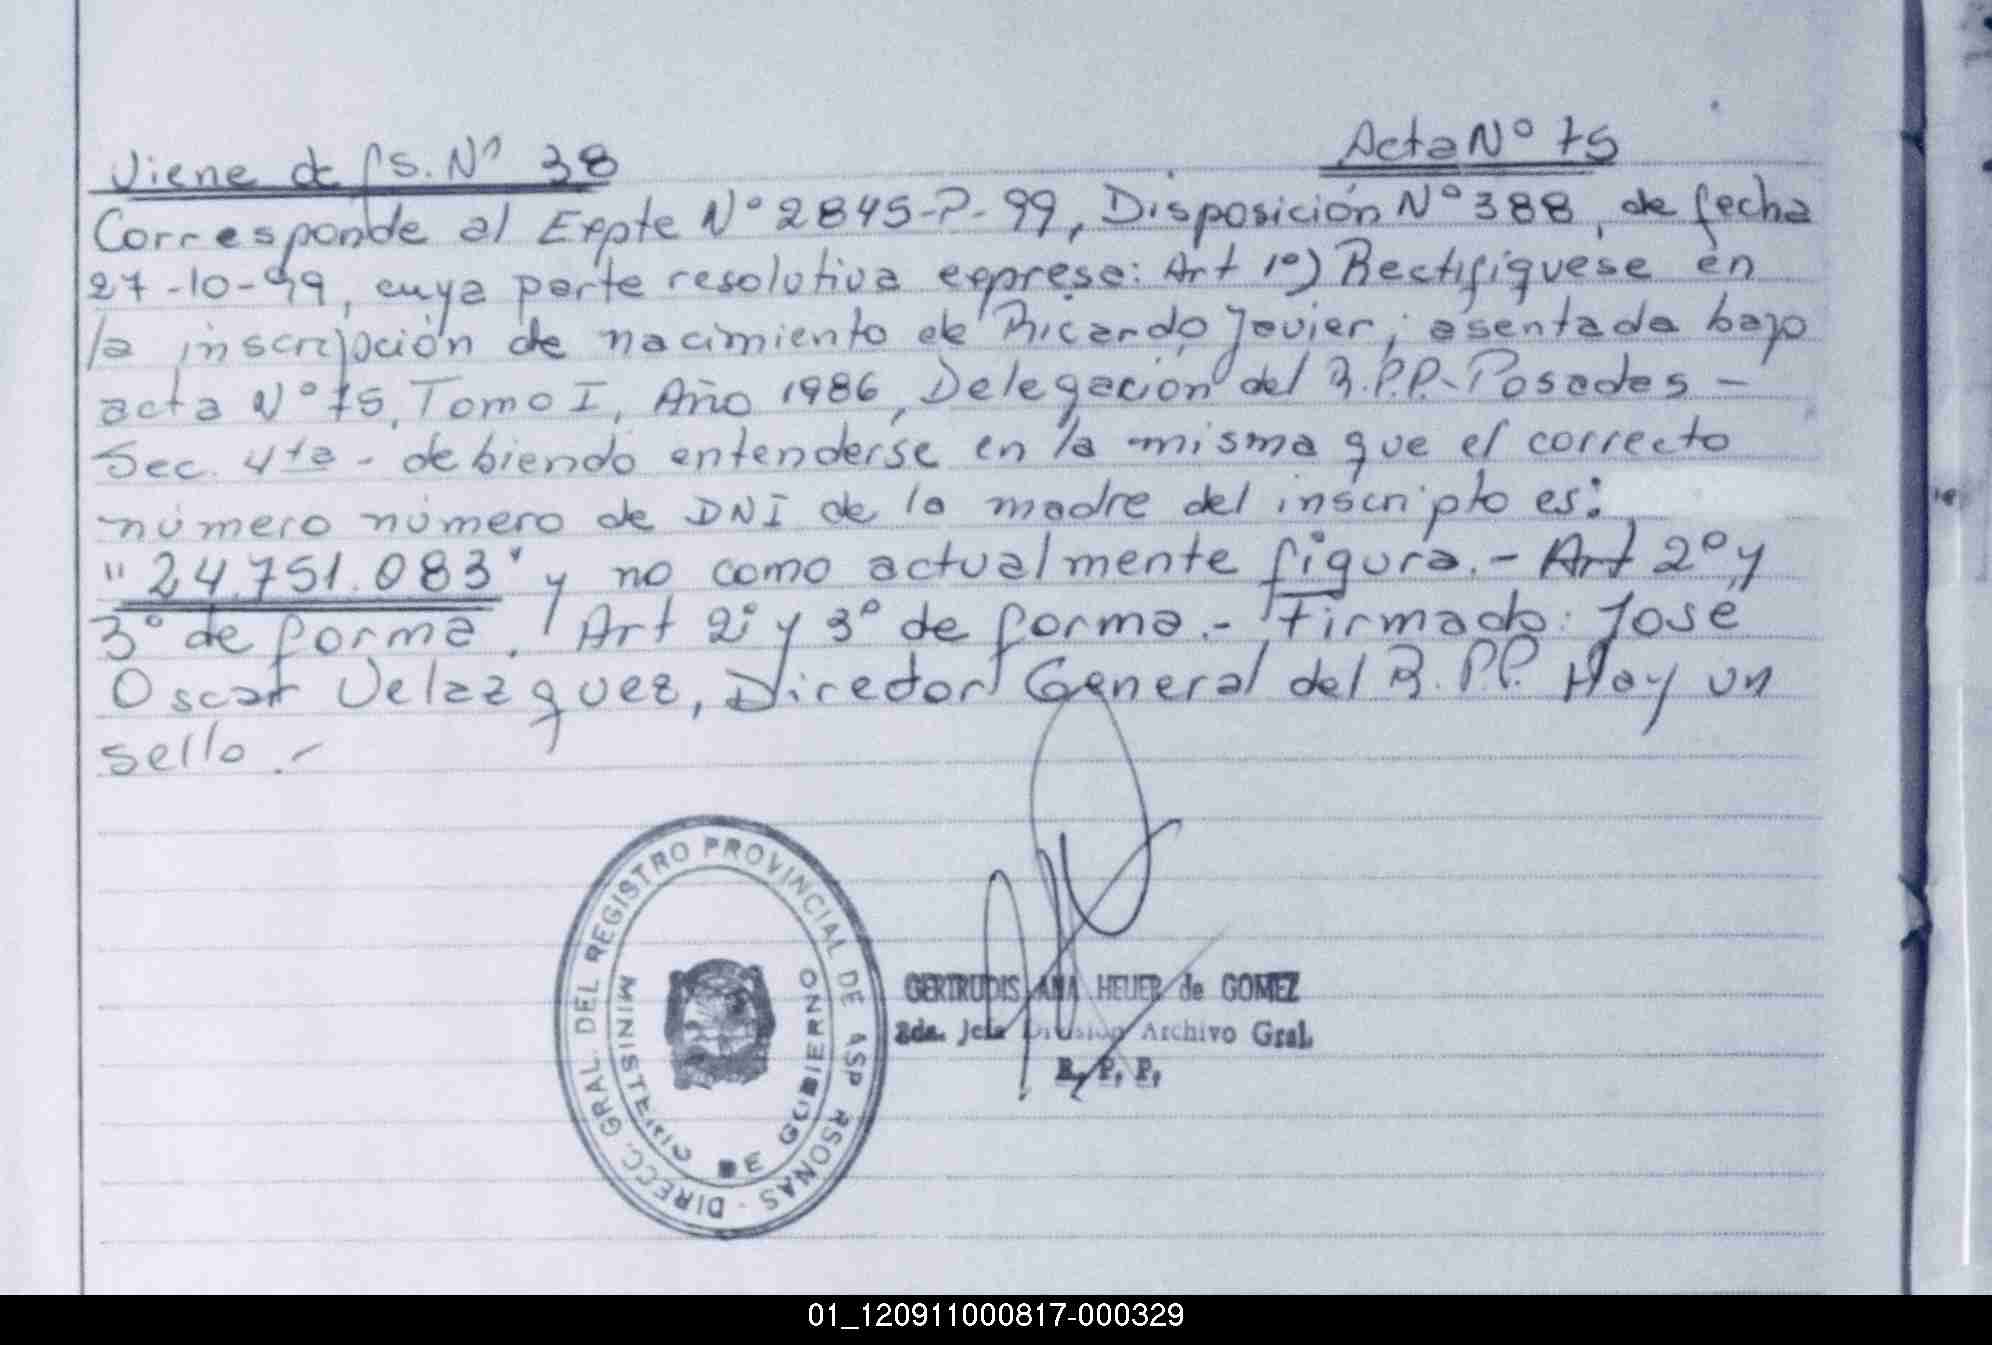 Viene de fs. Nº 38
Acta Nº 75
Corresponde al Expte Nº 2845-P-99, Disposición Nº 388, de fecha
27-10-99, cuya parte resolutiva expresa: Art 1º) Rectifíquese en
la inscripción de nacimiento de Ricardo Javier, asentada bajo
acta Nº 75, Tomo I, Año 1986, Delegación del R.P.P. Posadas -
Sec. 4ta - debiendo entenderse en la misma que el correcto
número número de DNI de la madre del inscripto es:
"24.751.083" y no como actualmente figura.- Art 2º y
3º de forma. Art 2º y 3º de forma.- Firmado: José
Oscar Velazquez, Director General del R.P.P. Hay un
sello.-
DIRECC. GRAL. DEL REGISTRO PROVINCIAL DE LAS PERSONAS -
MINISTERIO DE GOBIERNO
GERTRUDIS ANA HEUER de GOMEZ
2da. Jefa División Archivo Gral.
R. P. P.
01_120911000817-000329